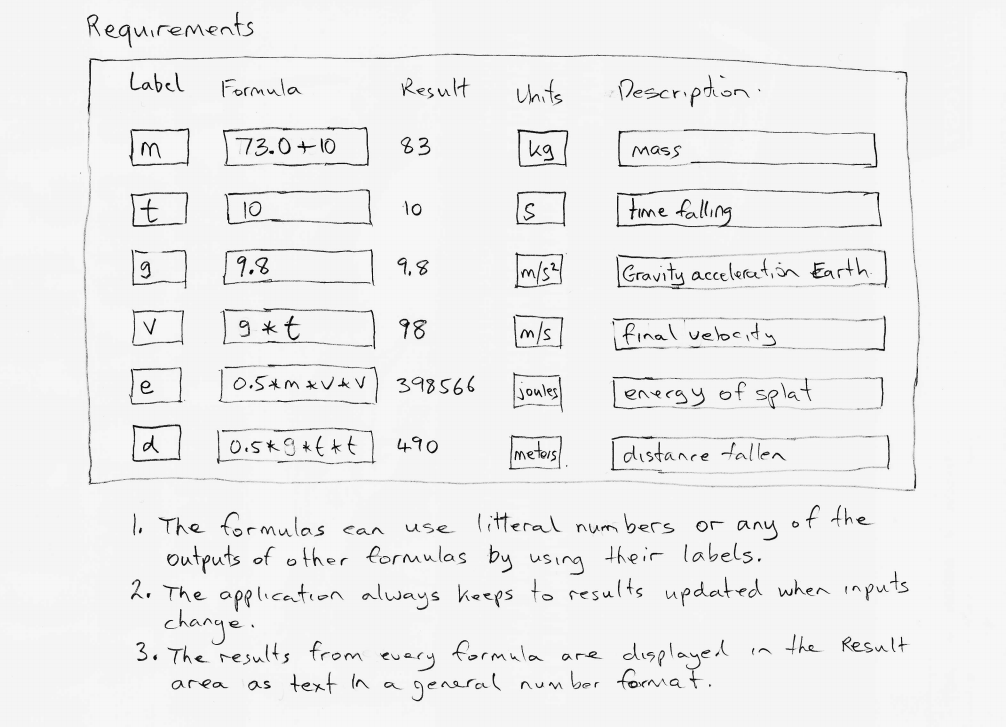 Requirements
Label Formula Result Units Description.
m 73.0+10 83 kg mass
t 10 10 s time falling
g 9.8 9.8 m/s² Gravity acceleration Earth
v g*t 98 m/s final velocity
e 0.5*m*v*v 398566 joules energy of splat
d 0.5*g*t*t 490 meters distance fallen
1. The formulas can use litteral numbers or any of the
outputs of other formulas by using their labels.
2. The application always keeps to results updated when inputs
change.
3. The results from every formula are displayed in the Result
area as text in a general number format.